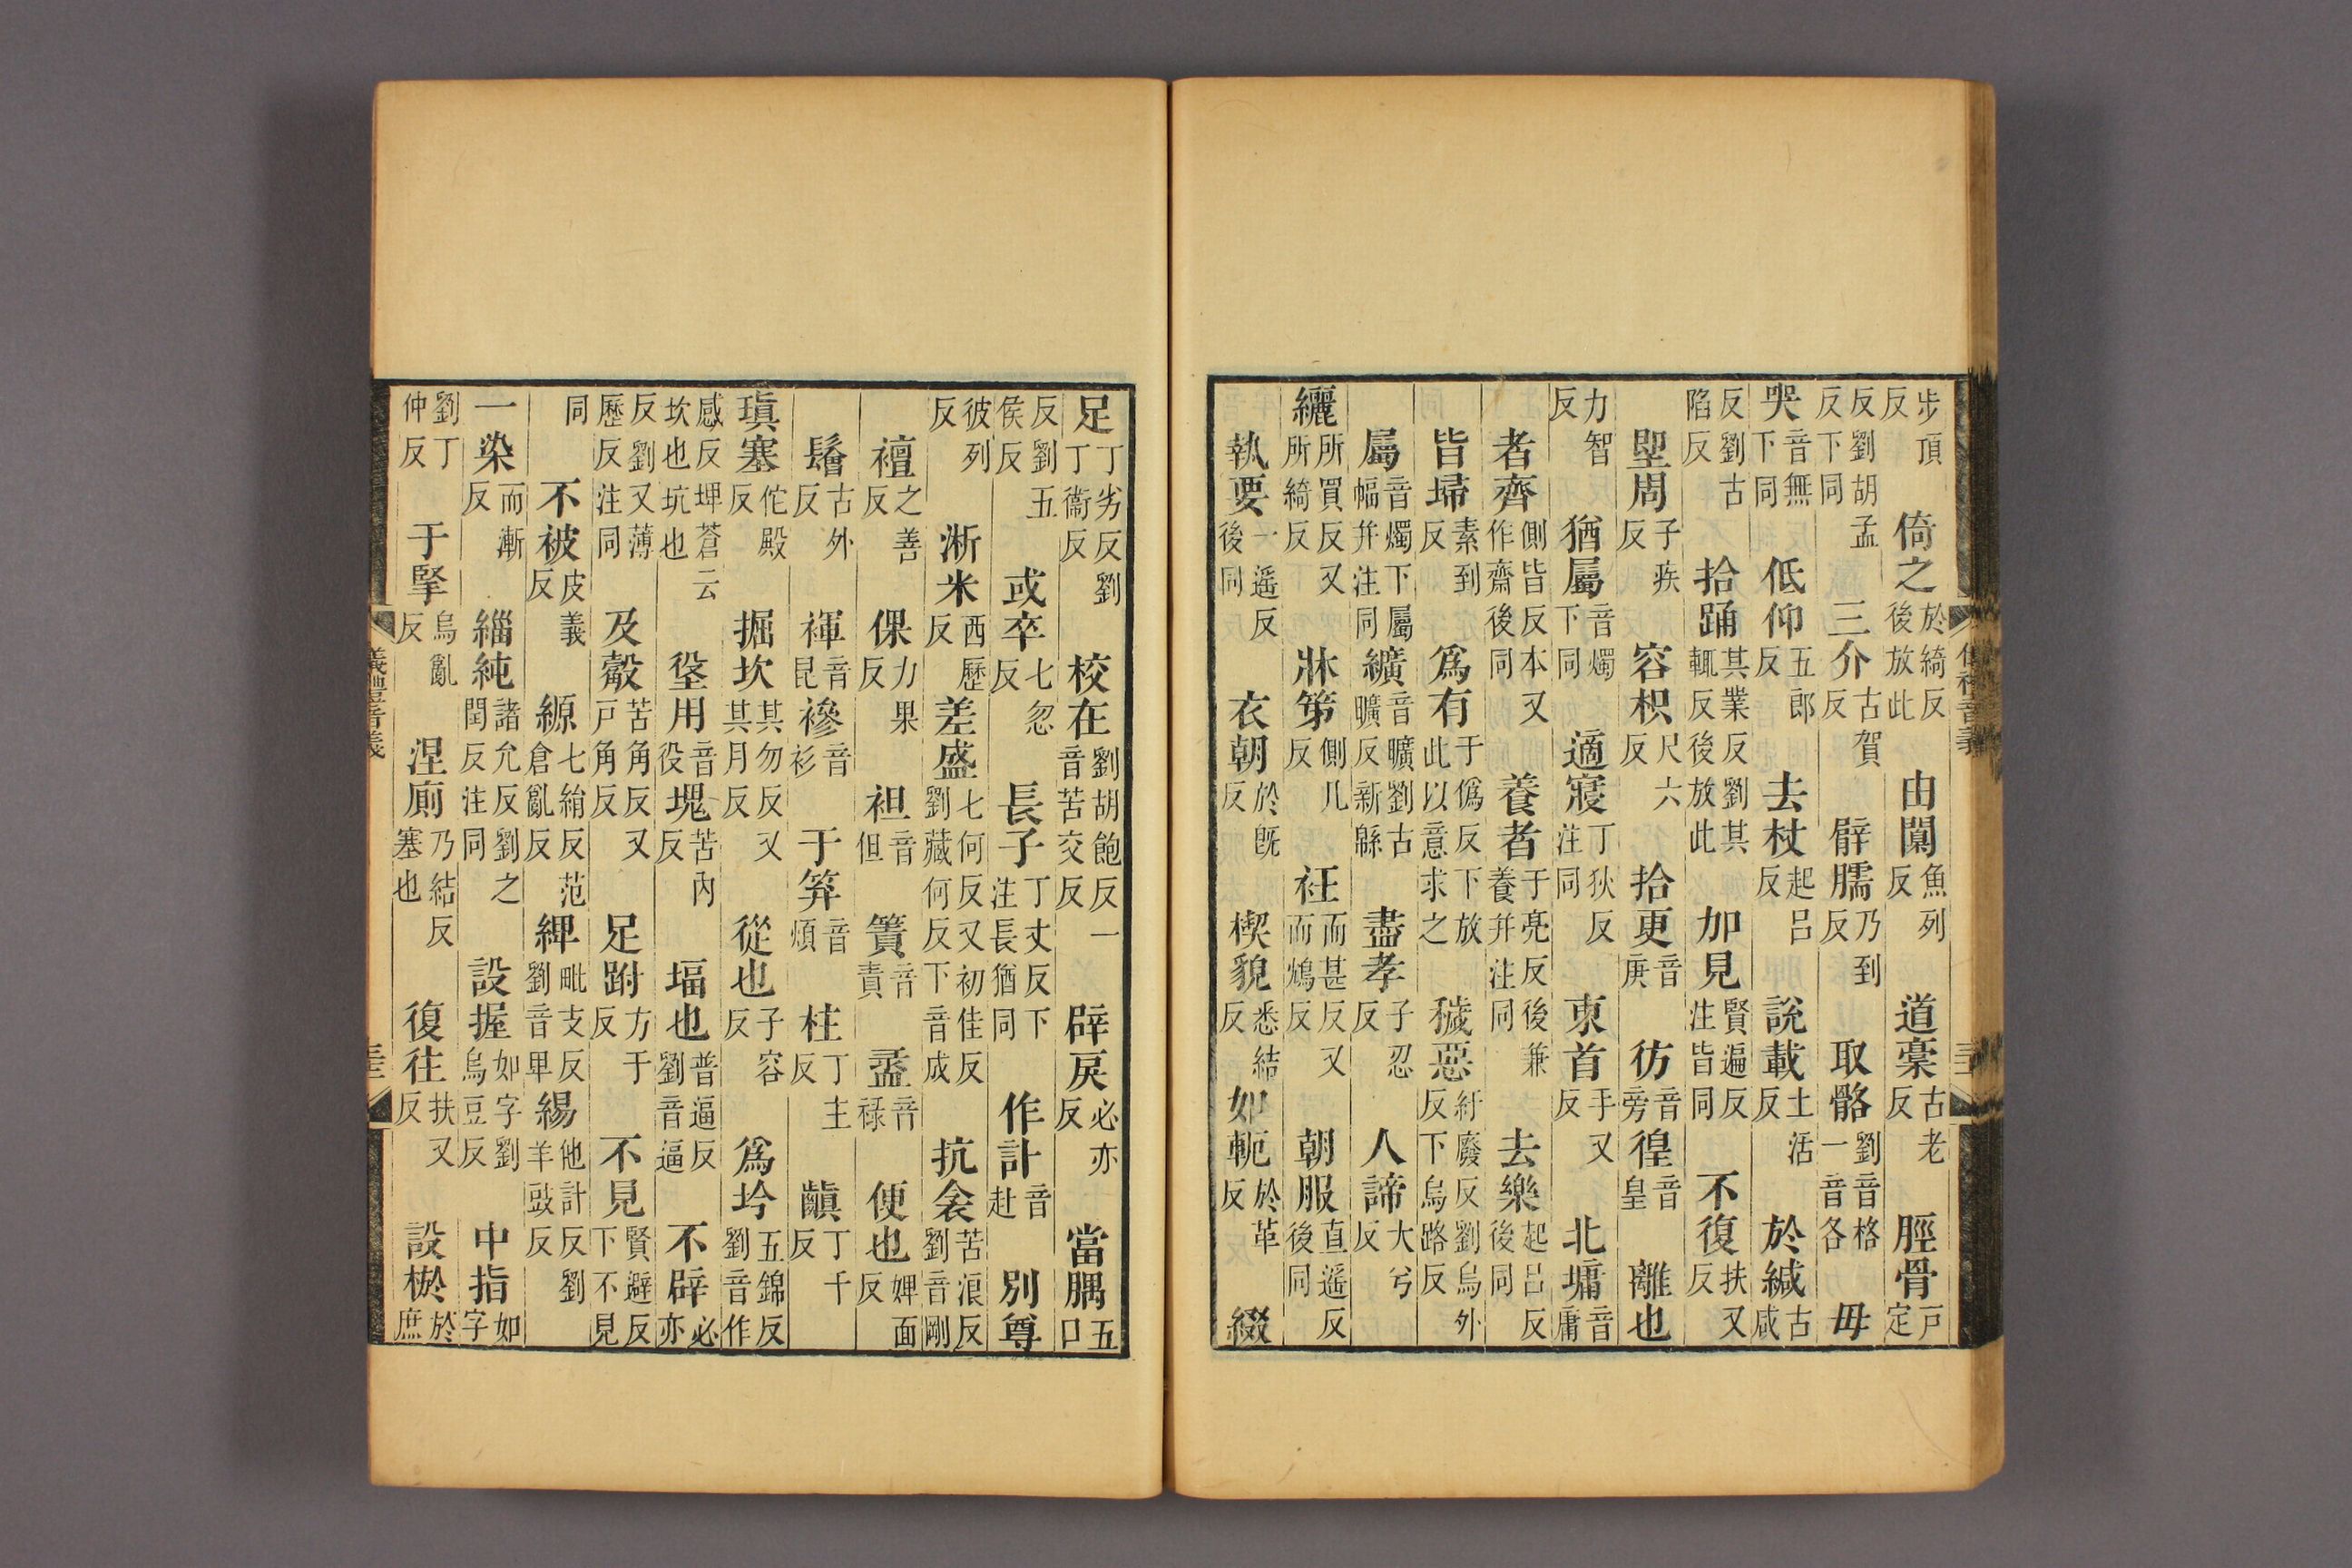 步頂反倚之於綺反後放此由闑魚列反道槀古老反脛骨戶定
反劉胡孟反下同三介古賀反臂臑乃到反取骼劉音格一音各毋
哭音無下同低仰五郎反去杖起呂反說載土活反於緘古咸
反劉古陷反拾踊其業反劉其輒反後放此加見賢遍反注皆同不復扶又反
堲周子疾反容柷尺六反拾更音庚彷音旁徨音皇離也
力智反猶屬音燭下同適寢丁狄反注同東首手又反北墉音庸
者齊側皆反本又作齋後同養者于亮反後兼養并注同去樂起呂反後同
皆埽素到反爲有于僞反下放此以意求之穢惡紆廢反劉烏外反下烏路反
屬音燭下屬幅并注同纊音曠劉古曠反新緜盡孝子忍反人諦大兮反
纚所買反又所綺反牀笫側几反衽而甚反又而鴆反朝服直遥反後同
執要一遥反後同衣朝於旣反楔貌悉結反如軛於革反綴
足丁劣反劉丁衞反校在劉胡飽反一音苦交反辟戾必亦反當腢五口
反劉五侯反或卒七忽反長子丁丈反下注長猶同作計音赴別尊
彼列反淅米西歷反差盛七何反又初佳反劉藏何反下音成抗衾苦浪反劉音剛
襢之善反倮力果反袒音但簀音責盝音祿便也婢面反
鬠古外反褌音昆襂音衫于筓音煩柱丁主反齻丁千反
瑱塞佗殿反掘坎其勿反又其月反從也子容反爲坅五錦反劉音作
感反坤蒼云坎也坑也垼用音役塊苦內反堛也普逼反劉音逼不辟必亦
反劉又薄歷反注同及觳苦角反又戶角反足跗方于反不見賢避反下不見
同不被皮義反縓七絹反范倉亂反綼毗支反劉音卑緆他計反劉羊豉反
一染而漸反緇純諸允反劉之閏反注同設握如字劉烏豆反中指如字
劉丁仲反于掔烏亂反涅廁乃結反塞也復往扶又反設棜於庶
儀禮音義